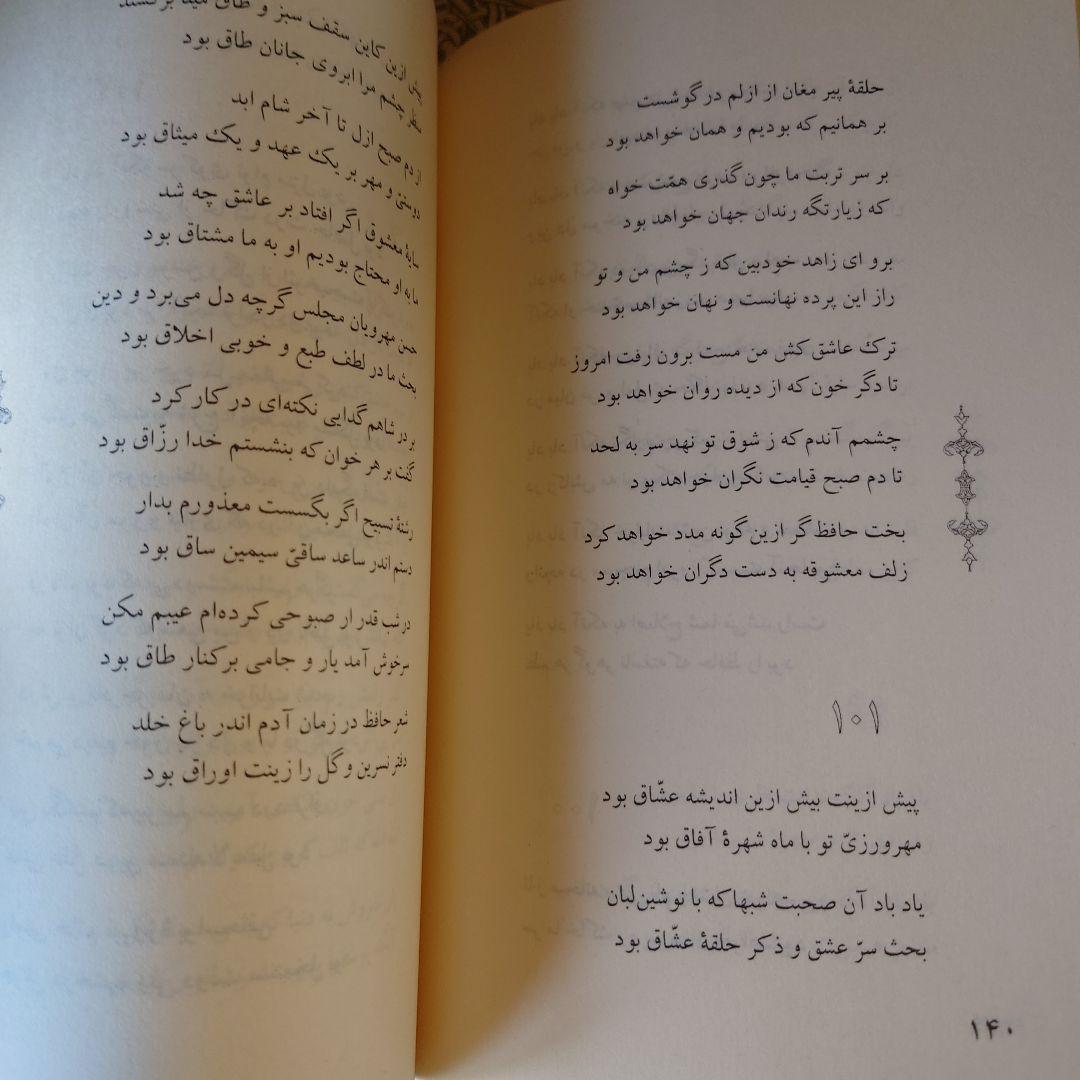 حلقهٔ پیر مغان از ازلم در گوشست
بر همانیم که بودیم و همان خواهد بود
بر سر تربت ما چون گذری همّت خواه
که زیارتگه رندان جهان خواهد بود
برو ای زاهد خودبین که ز چشم من و تو
راز این پرده نهانست و نهان خواهد بود
ترک عاشق کش من مست برون رفت امروز
تا دگر خون که از دیده روان خواهد بود
چشمم آندم که ز شوق تو نهد سر به لحد
تا دم صبح قیامت نگران خواهد بود
بخت حافظ گر ازین گونه مدد خواهد کرد
زلف معشوقه به دست دگران خواهد بود
۱۰۱
پیش ازینت بیش ازین اندیشه عشّاق بود
مهرورزیّ تو با ماه شهرهٔ آفاق بود
یاد باد آن صحبت شبها که با نوشین‌لبان
بحث سرّ عشق و ذکر حلقهٔ عشّاق بود
۱۴۰
پیش ازین کاین سقف سبز و طاق مینا برکشند
منظر چشم مرا ابروی جانان طاق بود
از دم صبح ازل تا آخر شام ابد
دوستی و مهر بر یک عهد و یک میثاق بود
سایهٔ معشوق اگر افتاد بر عاشق چه شد
ما به او محتاج بودیم او به ما مشتاق بود
حسن مهرویان مجلس گرچه دل می‌برد و دین
بحث ما در لطف طبع و خوبی اخلاق بود
بر در شاهم گدایی نکته‌ای در کار کرد
گفت بر هر خوان که بنشستم خدا رزّاق بود
رشتهٔ تسبیح اگر بگسست معذورم بدار
دستم اندر ساعد ساقیّ سیمین ساق بود
در شب قدر ار صبوحی کرده‌ام عیبم مکن
سرخوش آمد یار و جامی بر کنار طاق بود
شعر حافظ در زمان آدم اندر باغ خلد
دفتر نسرین و گل را زینت اوراق بود